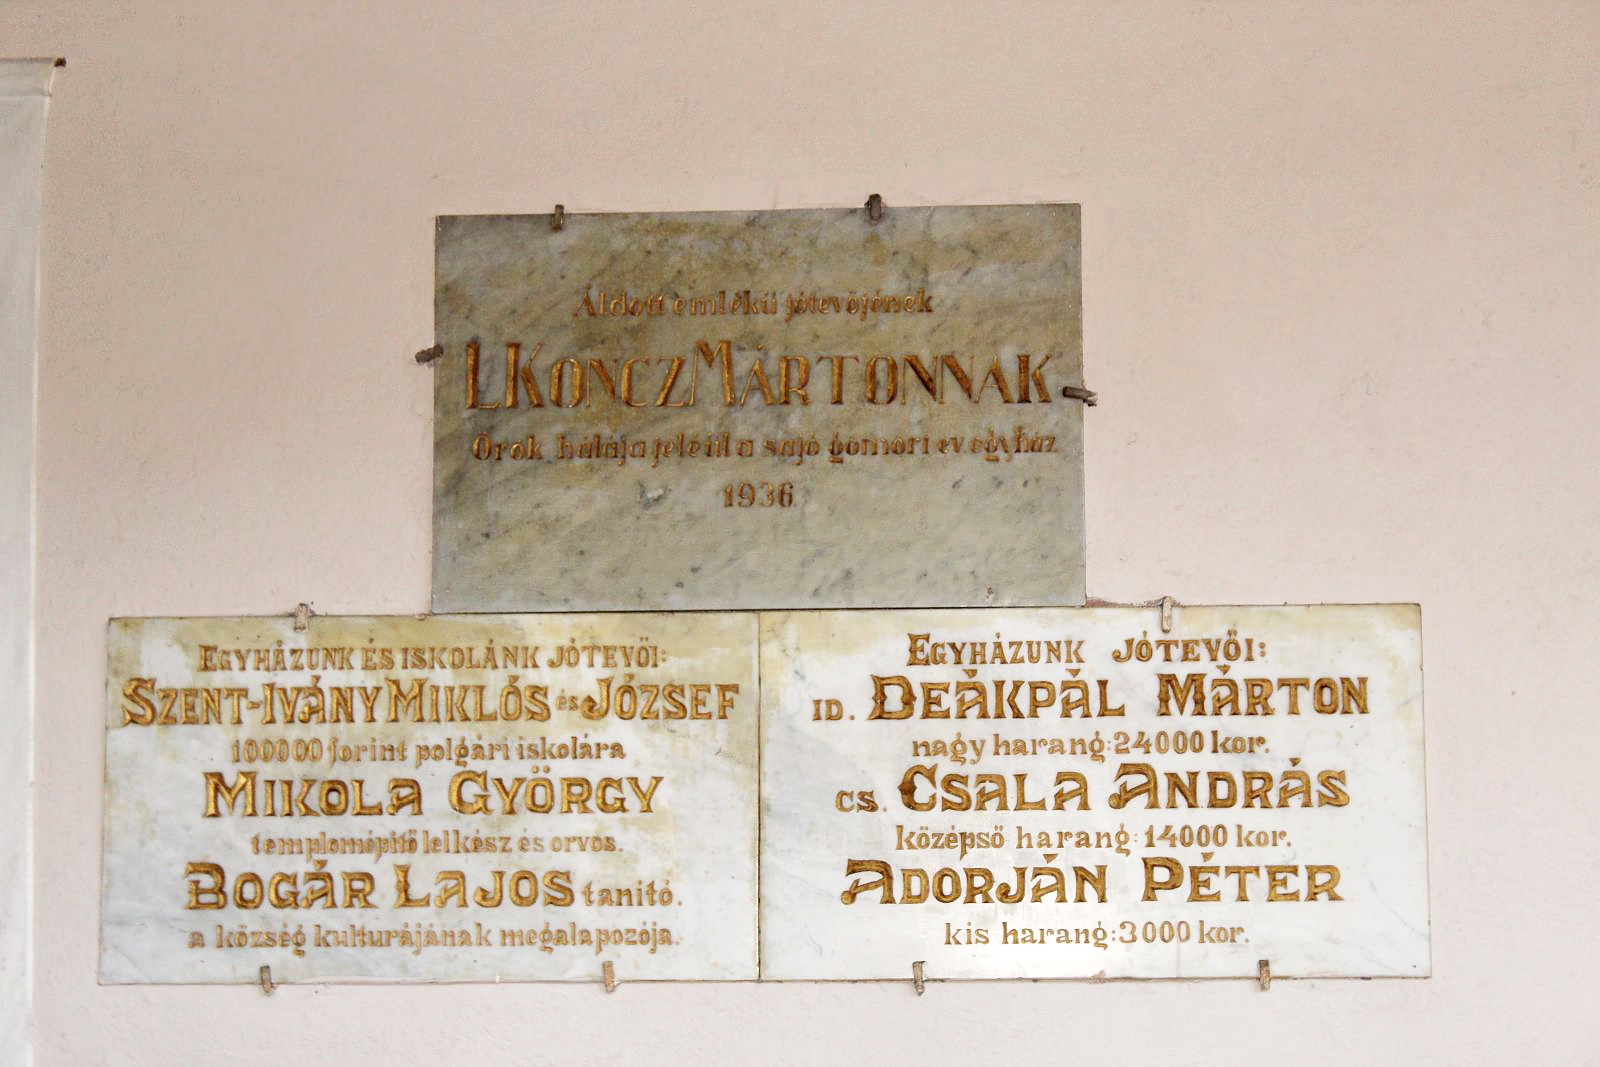 Áldott emlékü jótevőjének
L KONCZ MÁRTONNAK
Örök hálája jeléül a sajó gömöri ev. egyház
1936
EGYHÁZUNK ÉS ISKOLÁNK JÓTEVŐI:
SZENT-IVÁNY MIKLÓS és JÓZSEF
100000 forint polgári iskolára
MIKOLA GYÖRGY
templomépitő lelkész és orvos.
BOGÁR LAJOS tanitó.
a község kulturájának megalapozója.
EGYHÁZUNK JÓTEVŐI:
ID. DEÁKPÁL MÁRTON
nagy harang: 24000 kor.
CS. CSALA ANDRÁS
középső harang: 14000 kor.
ADORJÁN PÉTER
kis harang: 3000 kor.